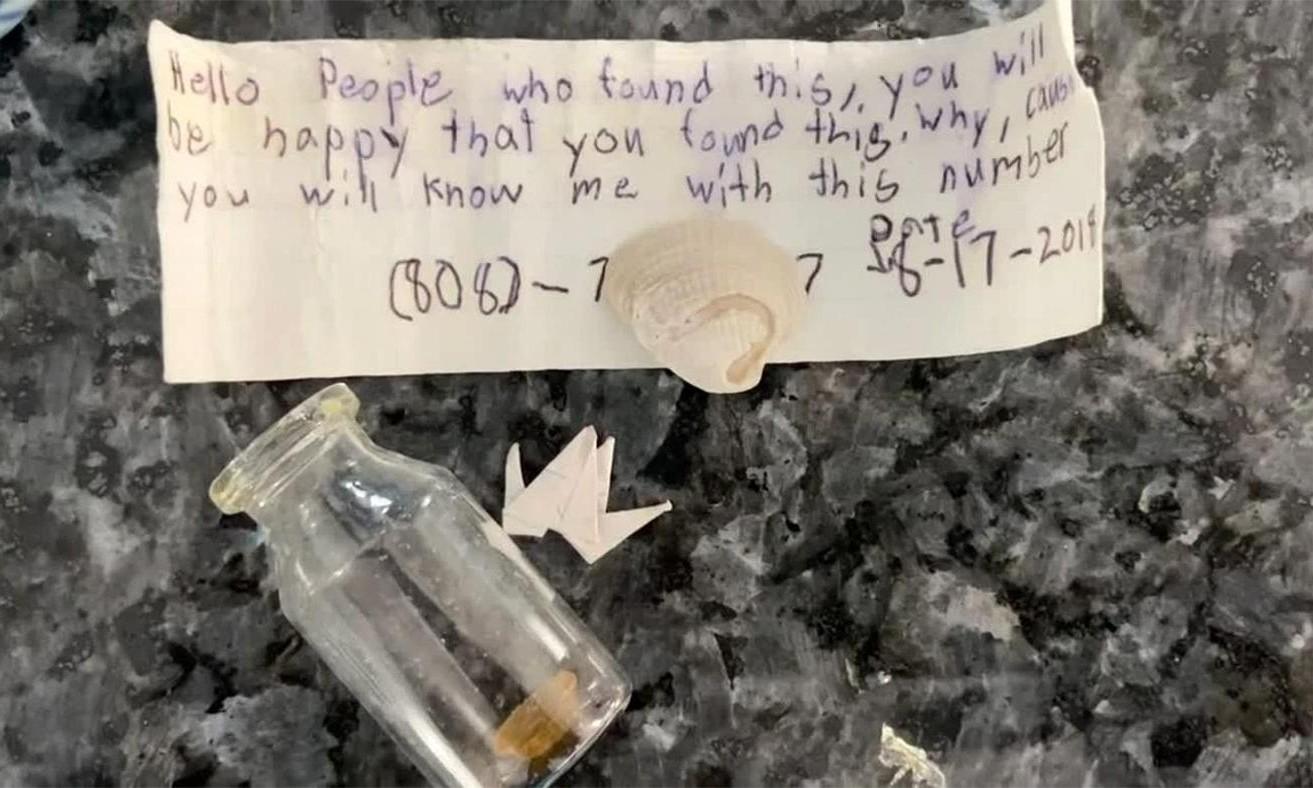 Hello People who found this, you will
be happy that you found this. Why, cause
you will know me with this number
Date
(808)-7 7 8-17-2019